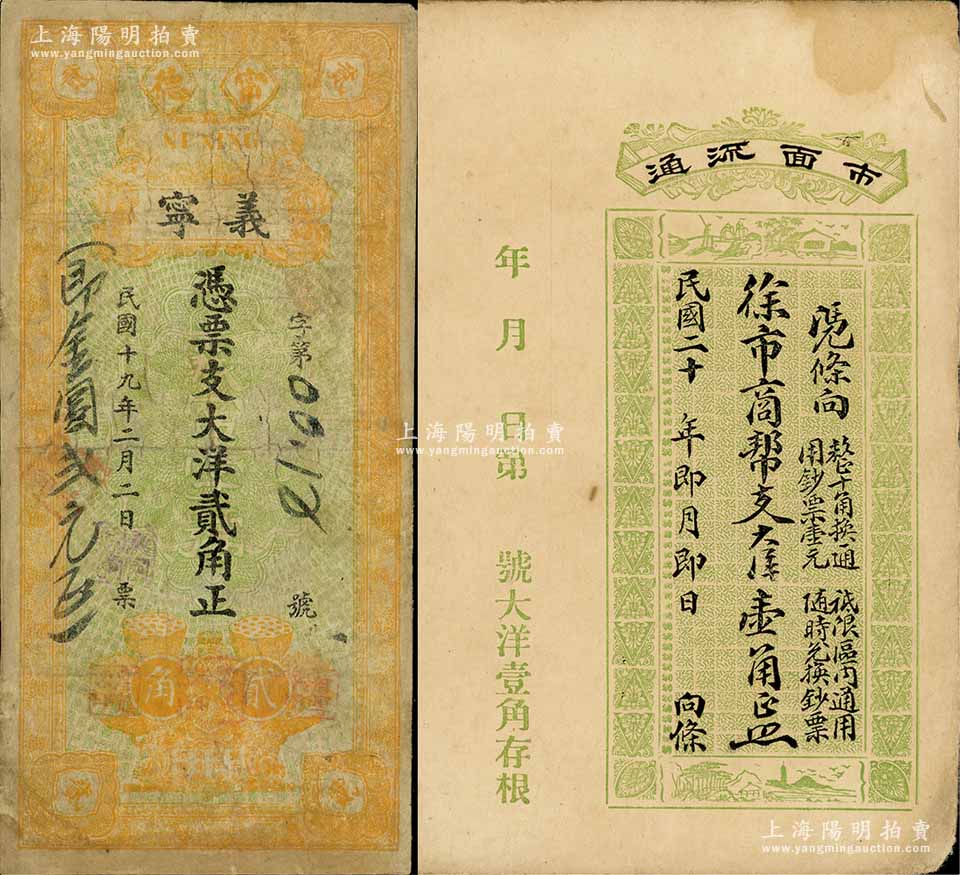 上海陽明拍賣
www.yangmingauction.com
寧德
義寧
字第
號
憑票支大洋貳角正
民國十九年二月二日
票
即金圓弍元正
貳角
上海陽明拍賣
www.yangmingauction.com
市面流通
憑條向
整十角換通用鈔票壹元
祇限區內通用
隨時兌換鈔票
徐市商幫支大洋壹角正
民國二十年即月即日
向條
年月日第號大洋壹角存根
上海陽明拍賣
www.yangmingauction.com